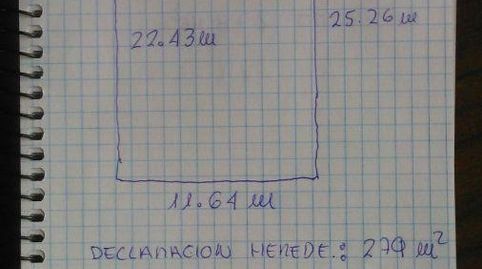 25.26 m
22.43 m
11.64 m
DECLARACION HEREDE.: 279 m²